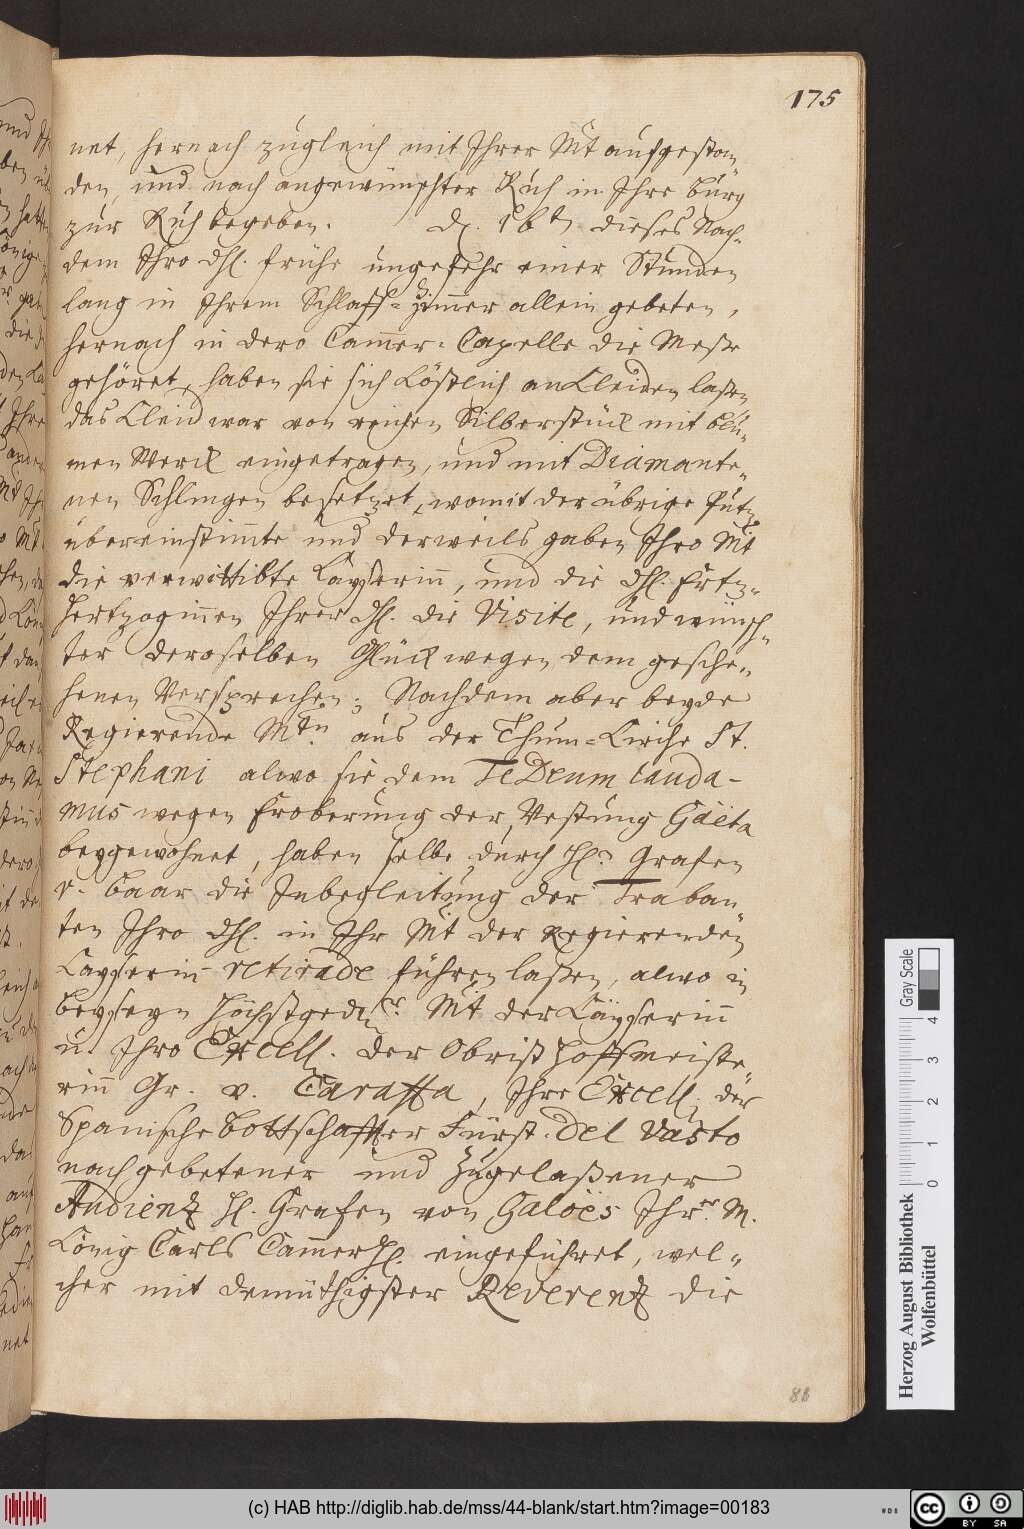 175
net, hernach zugleich mit Ihrer Mt aufgestan„
den, und nach angewünschter Ruh in Ihre burg
zur Ruh begeben. d. 16t dieses Nach„
dem Ihro dhl. frühe ungefehr einer Stunden
lang in Ihrem Schlaff-Zimmer allein gebeten,
hernach in dero Cammer-Capelle die Meße
gehöret, haben sie sich Köstlich an Kleiden laßen
das Kleid war von reichen Silberstück mit blu„
men Werck eingetragen, und mit Diamante„
nen Schlingen besetzet, womit der übrige Putz
übereinstimmte und derweils gaben Ihro Mt
die verwittibte Kayserinn, und die dhl. Ertz„
Hertzoginnen Ihrer dhl. die Visite, und wünsch„
ten deroselben Glück wegen dem gesche„
henen Versprechen; Nachdem aber beyde
Regierende Mtn aus der Thum-Kirche St.
Stephani alwo sie dem Te Deum lauda-
mus wegen Eroberung der Vestung Gaëta
beygewohnet, haben selbe durch Hl. Grafen
v. Paar die Inbegleitung der Traban„
ten Ihro dhl. in Ihr Mt der Regierenden
Kayserin retirade führen laßen, alwo in
beyseyn Höchstged. Mt der Käyserinn
u. Ihro Excell. der Obrist Hoffmeiste„
rinn Gr. v. Caraffa, Ihre Excell. der
Spanische bottschaffter Fürst Del Vasto
nach gebetener und Zugelaßener
Audientz Hl. Grafen von Galöes Ihr M.
König Carls CammerHl. eingeführet, wel„
cher mit demüthigster Reverentz die
88
Gray Scale
0 1 2 3 4
Herzog August Bibliothek
Wolfenbüttel
(c) HAB http://diglib.hab.de/mss/44-blank/start.htm?image=00183
WDB
CC BY SA